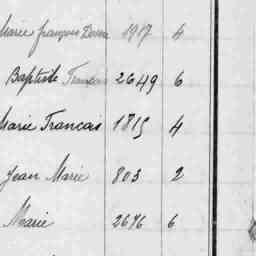 Marie françois 1917 4
Baptiste Français 2649 6
Marie Francais 1815 4
Jean Marie 803 2
Marie 2676 6